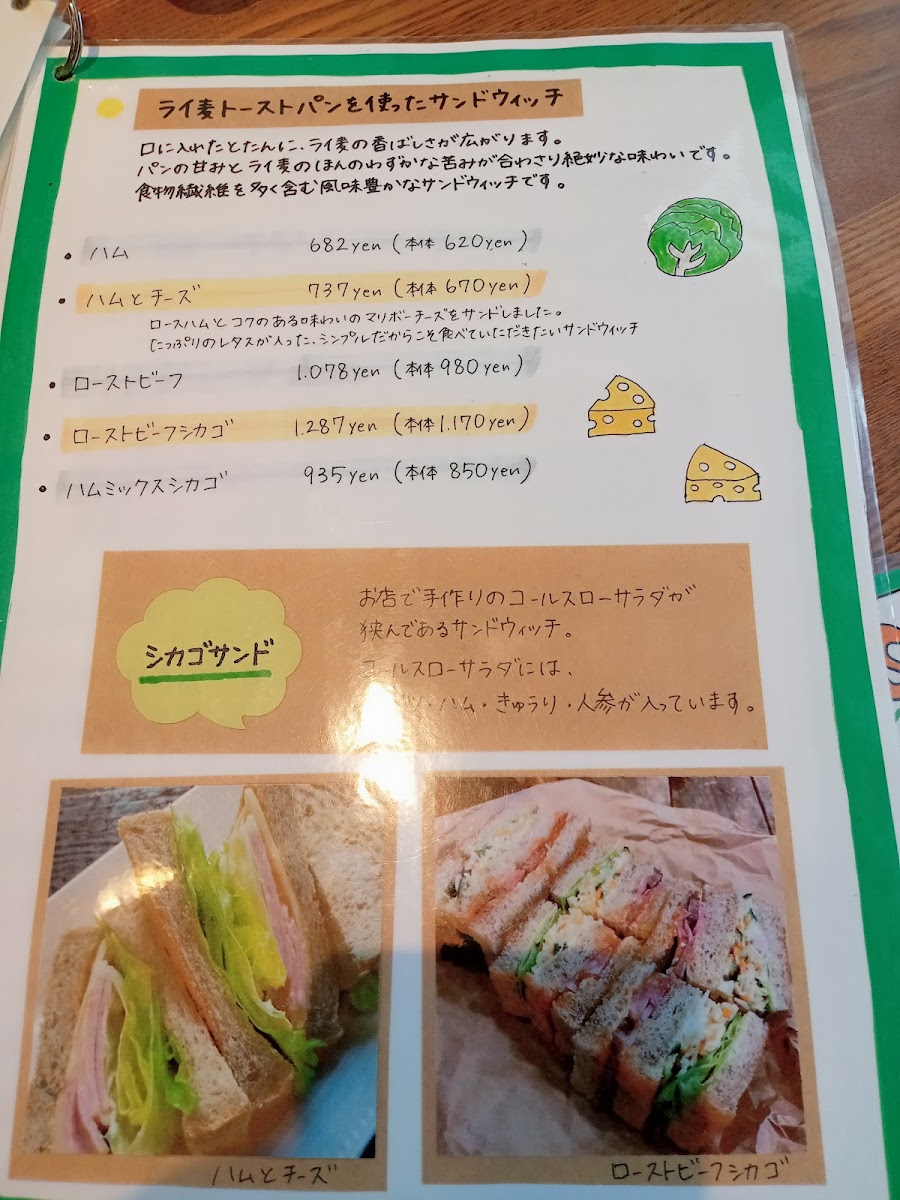 ライ麦トーストパンを使ったサンドウィッチ
口に入れたとたんに、ライ麦の香ばしさが広がります。
パンの甘みとライ麦のほんのわずかな苦みが合わさり絶妙な味わいです。
食物繊維を多く含む風味豊かなサンドウィッチです。
・ハム 682yen (本体 620yen)
・ハムとチーズ 737yen (本体 670yen)
ロースハムとコクのある味わいのマリボーチーズをサンドしました。
たっぷりのレタスが入った、シンプルだからこそ食べていただきたいサンドウィッチ
・ローストビーフ 1.078yen (本体 980yen)
・ローストビーフシカゴ 1.287yen (本体 1.170yen)
・ハムミックスシカゴ 935yen (本体 850yen)
シカゴサンド
お店で手作りのコールスローサラダが
狭んであるサンドウィッチ。
コールスローサラダには、
ツ・ハム・きゅうり・人参が入っています。
ハムとチーズ
ローストビーフシカゴ